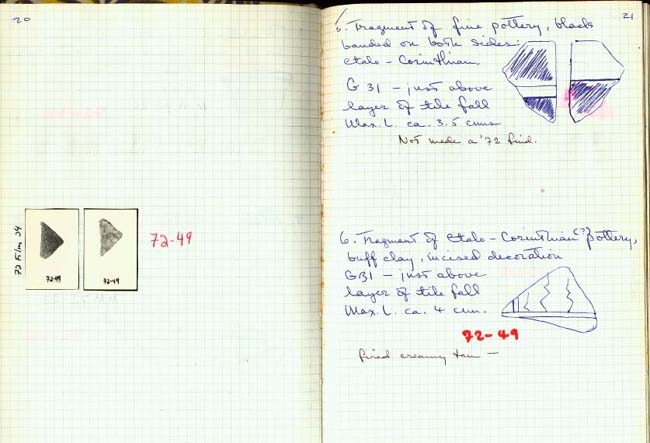 20
72 Film 34
72-49
72-49
72-49
21
6. Fragment of fine pottery, black
banded on both sides.
Etalo - Corinthian
G 31 - just above
layer of tile fall
Max. L. ca. 3.5 cms
Not made a '72 find.
6. Fragment of Etalo - Corinthian (?) pottery,
buff clay, incised decoration
G31 - just above
layer of tile fall
Max. L. ca. 4 cm.
72-49
fired creamy tan -